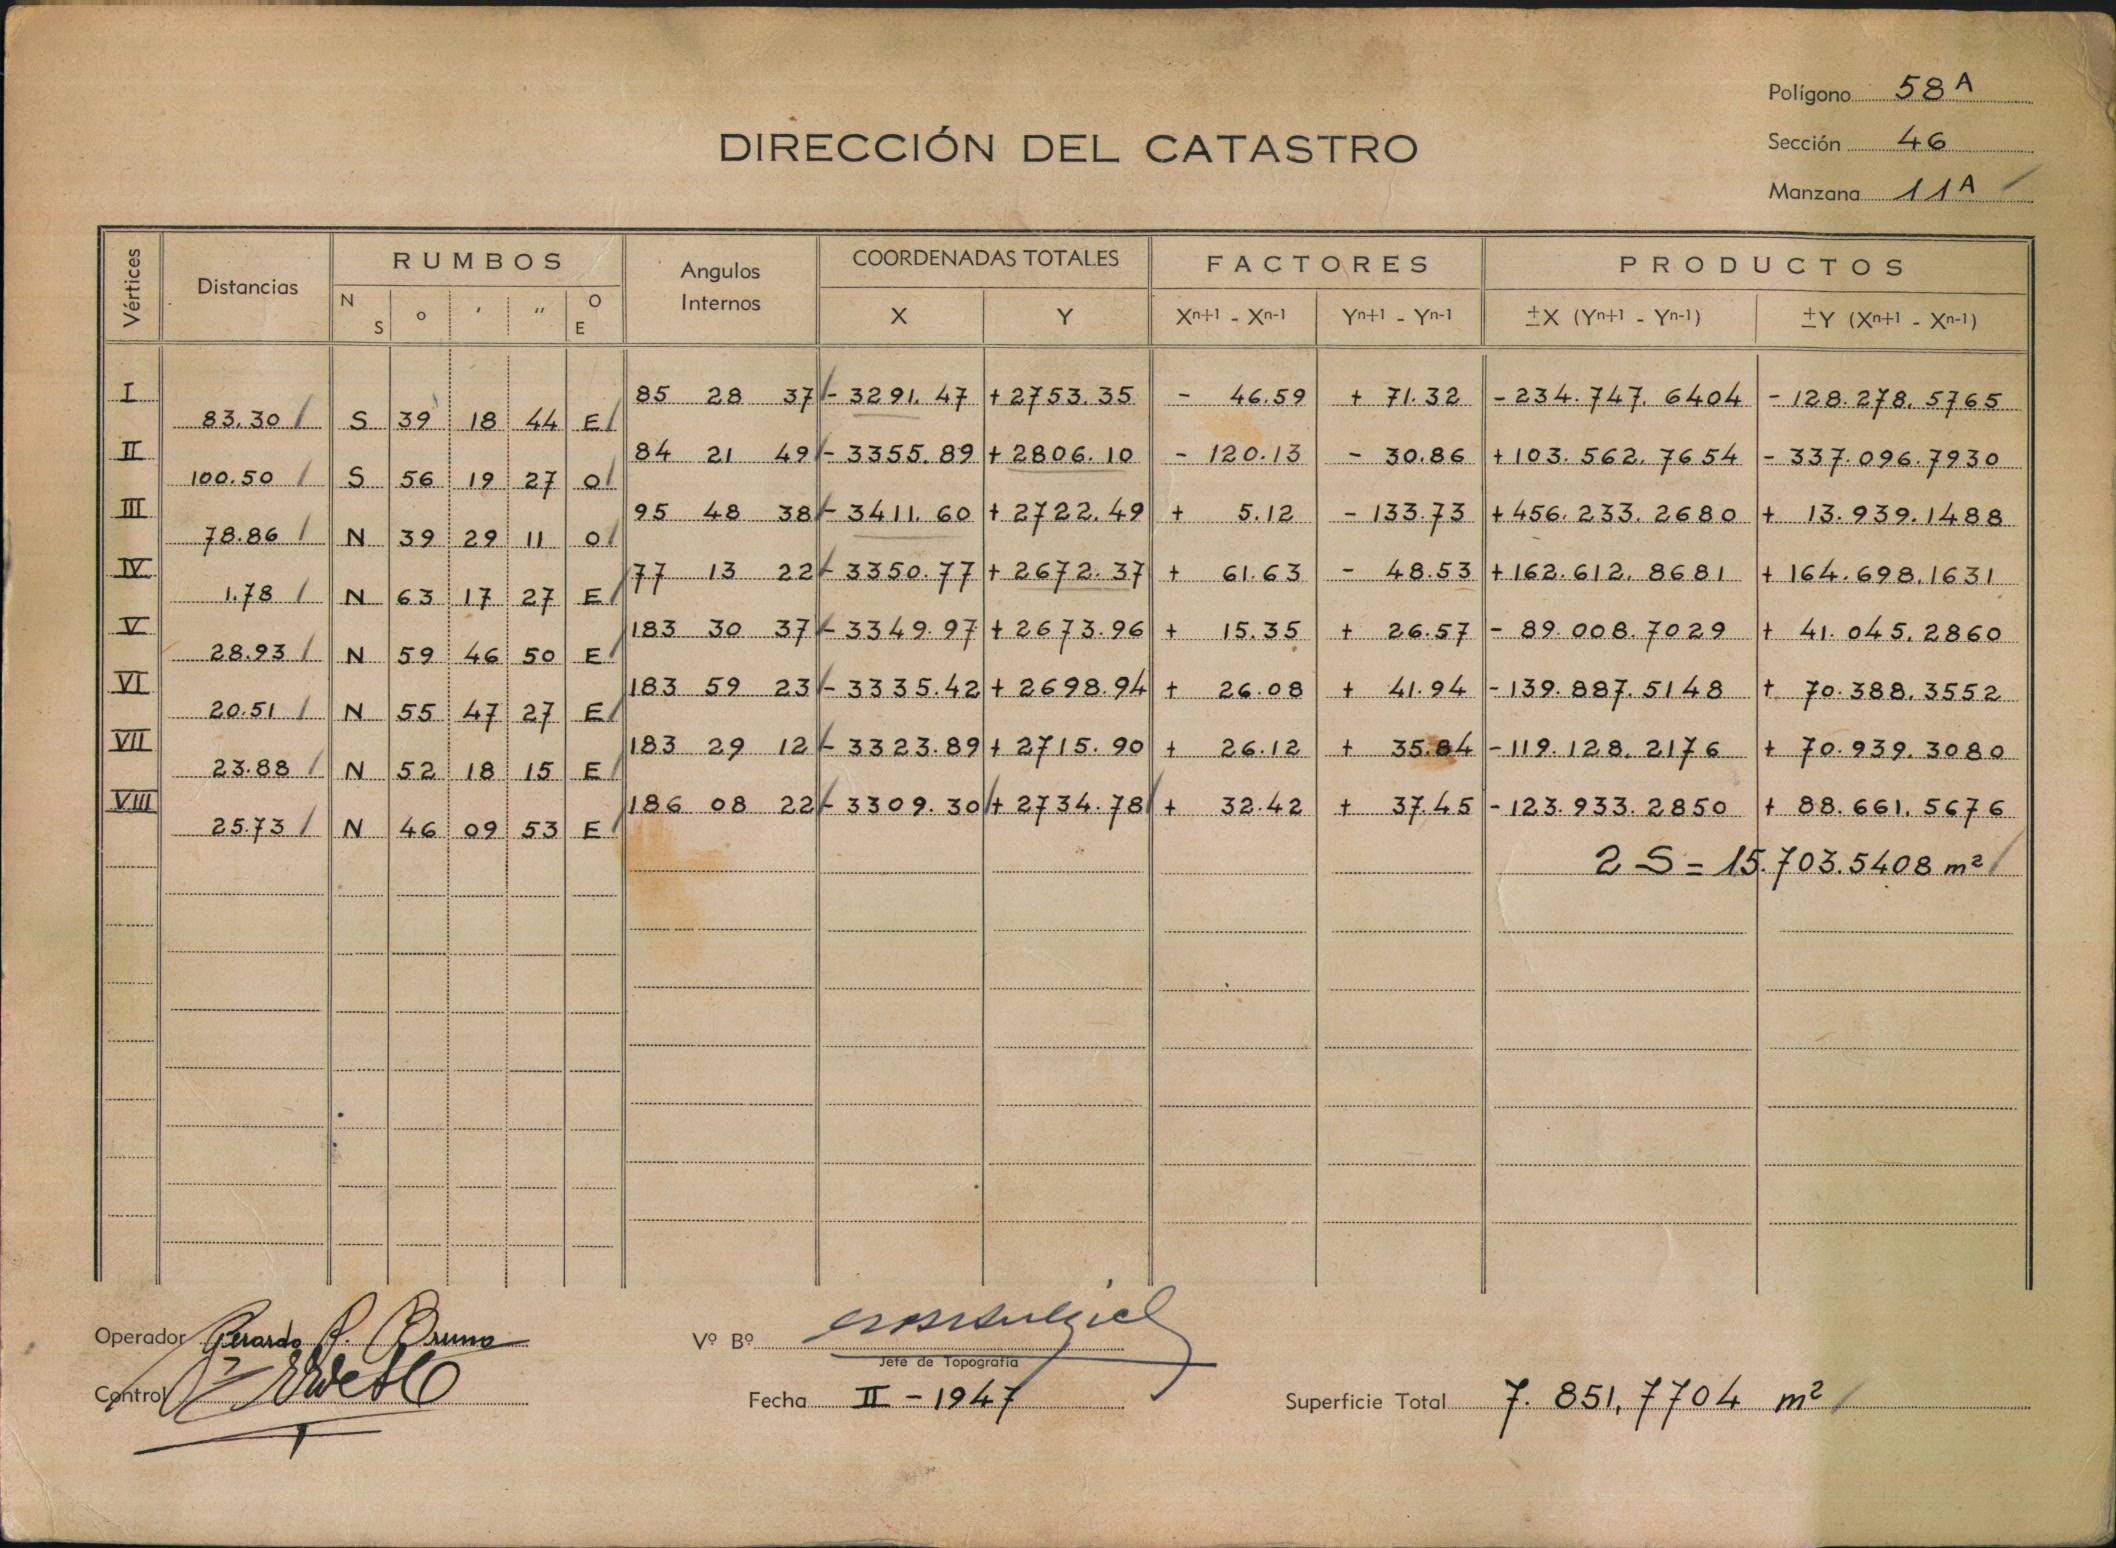 Polígono 58 A
Sección 46
Manzana 11 A
DIRECCIÓN DEL CATASTRO
Vértices Distancias RUMBOS Angulos Internos COORDENADAS TOTALES FACTORES PRODUCTOS
N S o ' " O E X Y Xn+1 - Xn-1 Yn+1 - Yn-1 ±X (Yn+1 - Yn-1) ±Y (Xn+1 - Xn-1)
I 85 28 37 - 3291.47 + 2753.35 - 46.59 + 71.32 - 234.747.6404 - 128.278.5765
83.30 S 39 18 44 E
II 84 21 49 - 3355.89 + 2806.10 - 120.13 - 30.86 + 103.562.7654 - 337.096.7930
100.50 S 56 19 27 O
III 95 48 38 - 3411.60 + 2722.49 + 5.12 - 133.73 + 456.233.2680 + 13.939.1488
78.86 N 39 29 11 O
IV 77 13 22 - 3350.77 + 2672.37 + 61.63 - 48.53 + 162.612.8681 + 164.698.1631
1.78 N 63 17 27 E
V 183 30 37 - 3349.97 + 2673.96 + 15.35 + 26.57 - 89.008.7029 + 41.045.2860
28.93 N 59 46 50 E
VI 183 59 23 - 3335.42 + 2698.94 + 26.08 + 41.94 - 139.887.5148 + 70.388.3552
20.51 N 55 47 27 E
VII 183 29 12 - 3323.89 + 2715.90 + 26.12 + 35.84 - 119.128.2176 + 70.939.3080
23.88 N 52 18 15 E
VIII 186 08 22 - 3309.30 + 2734.78 + 32.42 + 37.45 - 123.933.2850 + 88.661.5676
25.73 N 46 09 53 E
2 S = 15.703.5408 m²
Operador Gerardo A. Bruno
Vº Bº
Jefe de Topografía
Control
Fecha II - 1947
Superficie Total 7.851,7704 m²